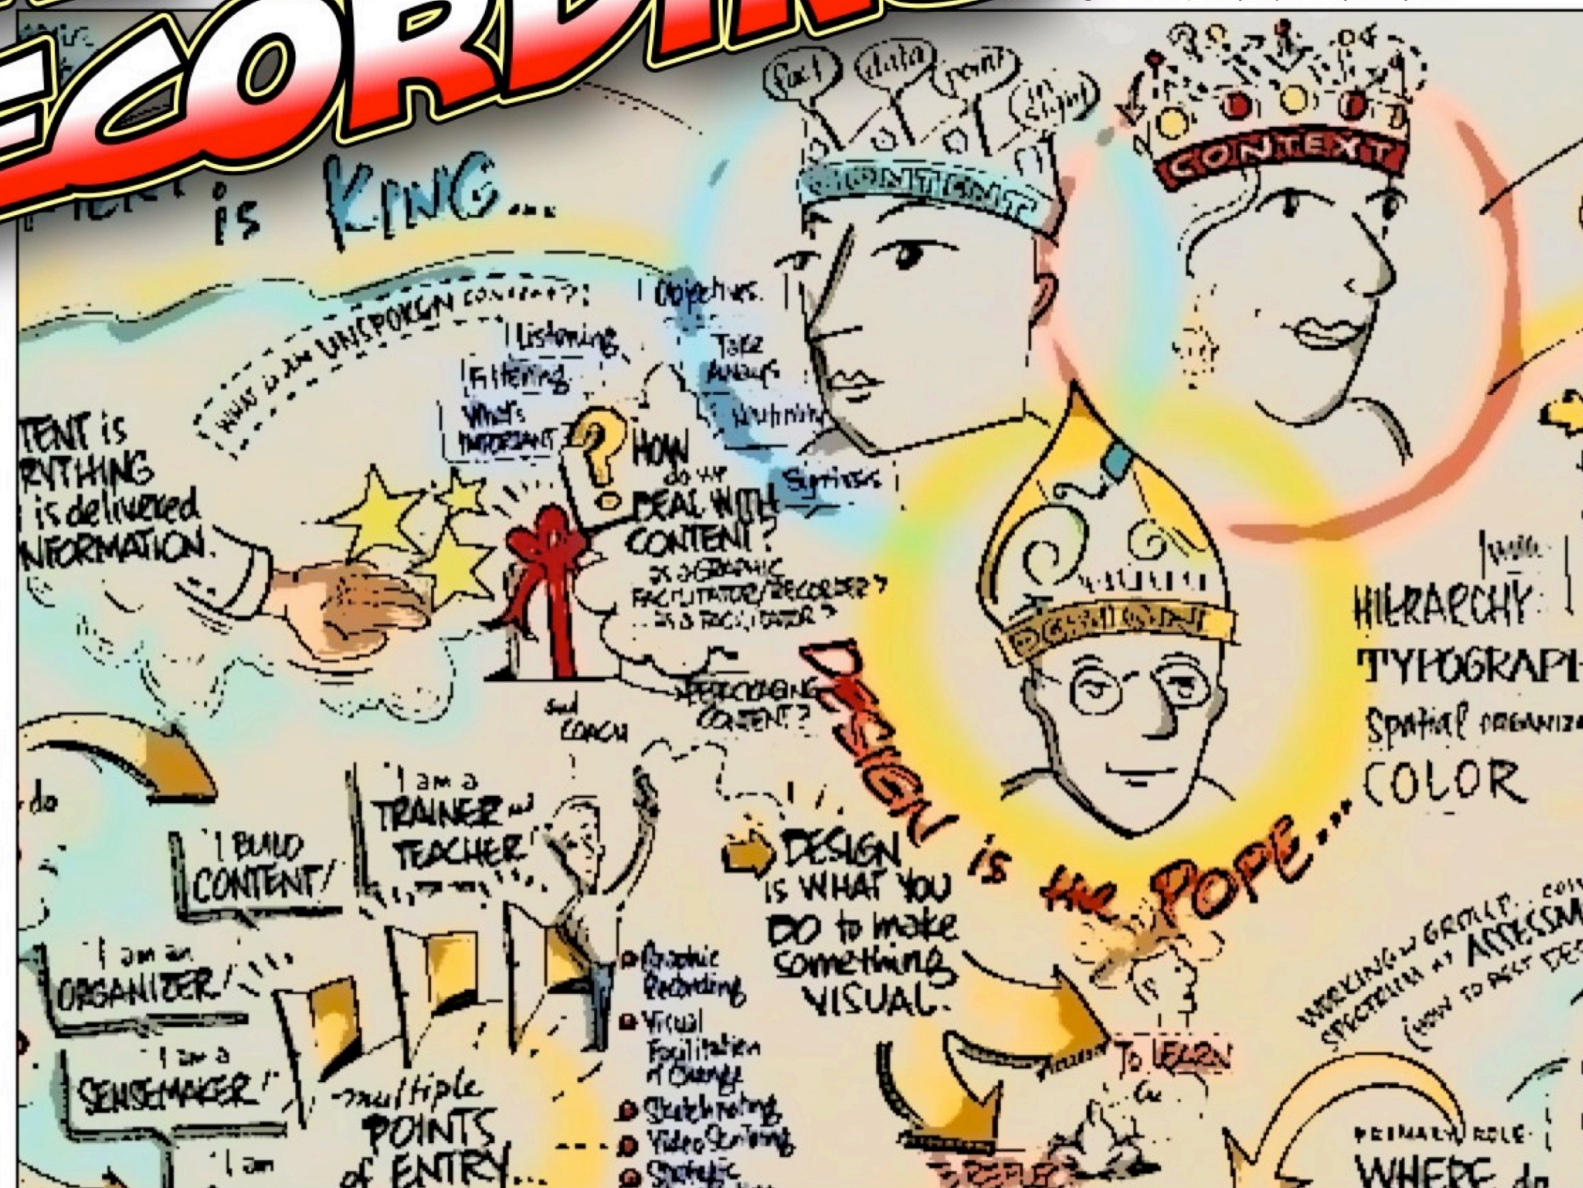 ECORDING
is KING...
fact
data
point
insight
CONTENT
CONTEXT
WHAT is an UNSPOKEN CONTENT?
Listening
Filtering
What's
IMPORTANT
Objectives.
Take
Aways
TENT is
RYTHING
is delivered
NFORMATION.
?
HOW
do we
DEAL WITH
CONTENT?
as a GRAPHIC
FACILITATOR/RECORDER?
as a FACILITATOR?
CONTENT?
and
COACH
DESIGN is the POPE...
HIERARCHY
TYPOGRAPH
Spatial ORGANIZA
COLOR
do
"I am a
TRAINER and
TEACHER!
"I BUILD
CONTENT!
"I am an
ORGANIZER!
"I am a
SENSEMAKER!"
"I am
multiple
POINTS
of ENTRY...
Graphic
Recording
Visual
Facilitation
of Change
Sketchnoting
Video Scribing
Strategic
DESIGN
is WHAT YOU
DO to make
something
VISUAL.
To LEARN
To REFLEC
WORKING w GROUP... CON
SPECTRUM as ASSESSM
(HOW TO BEST DES
PRIMARY ROLE
WHERE do